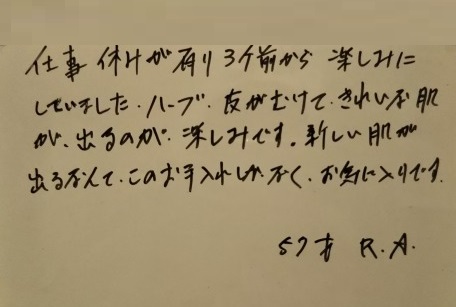 仕事 休みが有り 3ケ前から 楽しみに
していました.ハーブ.皮がむけて.きれいな肌
が、出るのが 楽しみです。新しい肌が
出るなんて.このお手入れしかなく.お気に入りです.
57才 R.A.